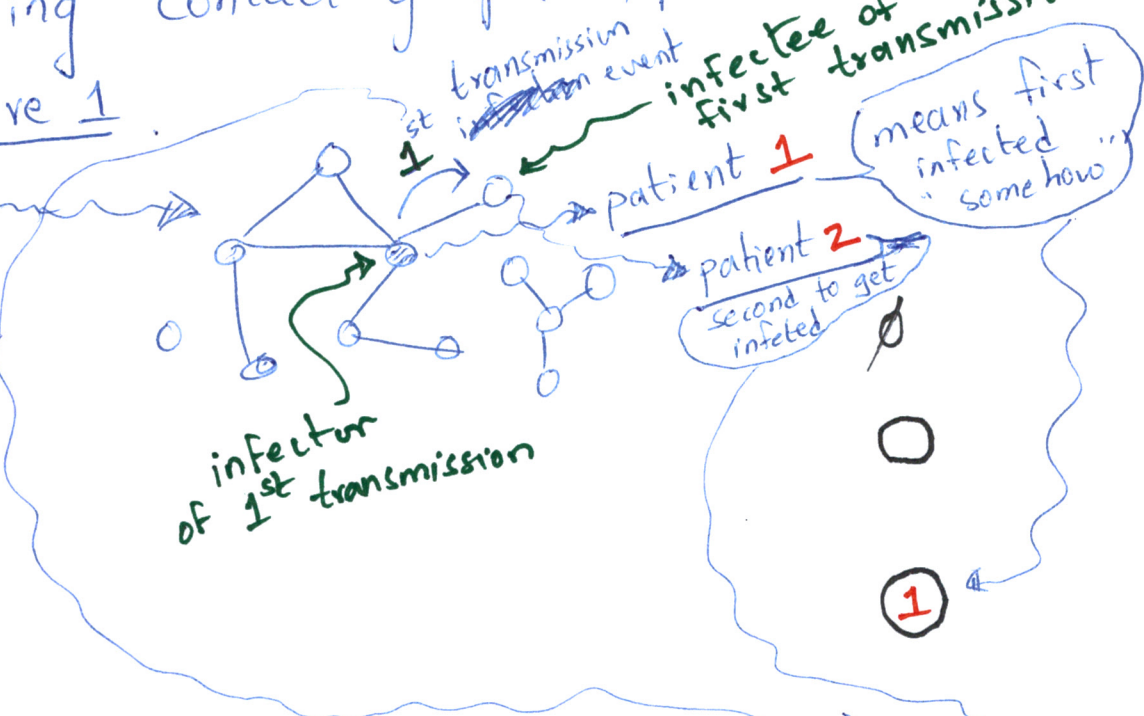 ing
ve 1
transmission
1st event
infectee of
first transmissi
patient 1
means first
infected
"somehow"
patient 2
second to get
infeted
infector
of 1st transmission
1